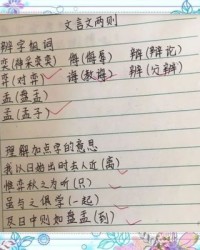 文言文两则
辨字组词
奕(神采奕奕) 侮(侮辱) 辩(辩论)
弈(对弈) 诲(教诲) 辨(分辨)
盂(盘盂)
孟(孟子)
理解加点字的意思
我以日始出时去人近(离)
惟弈秋之为听(只)
虽与之俱学(一起)
及日中则如盘盂(到)